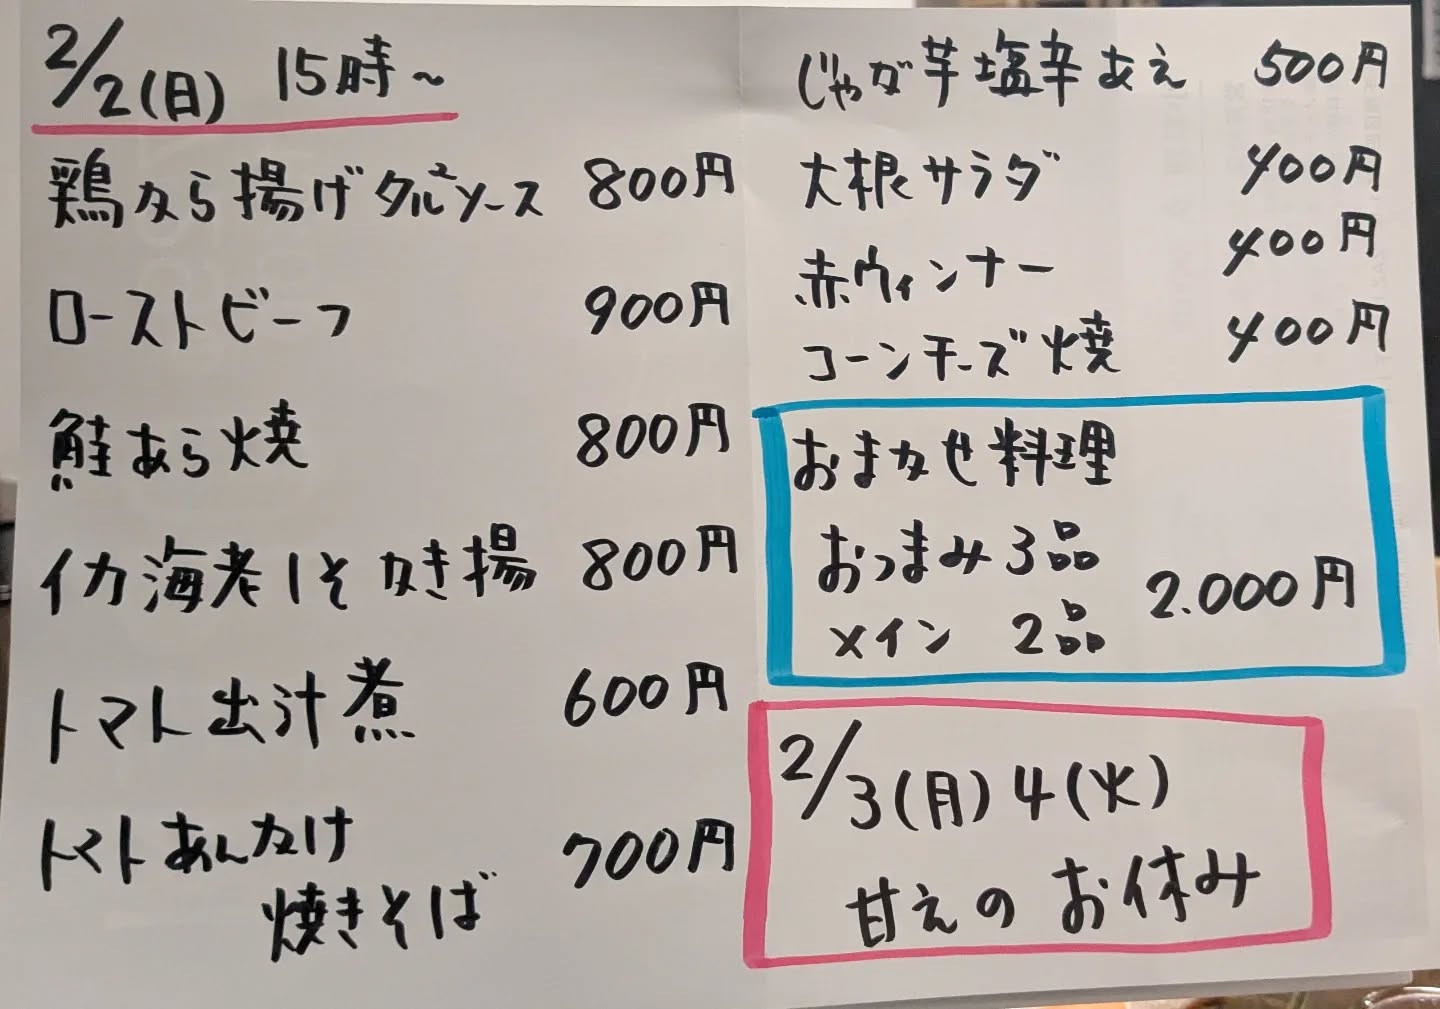 2/2(日) 15時～
鶏から揚げタルタルソース 800円
ローストビーフ 900円
鮭あら焼 800円
イカ海老しそかき揚 800円
トマト出汁煮 600円
トマトあんかけ
焼きそば 700円
じゃが芋塩辛あえ 500円
大根サラダ 400円
赤ウィンナー 400円
コーンチーズ焼 400円
おまかせ料理
おつまみ3品
メイン 2品 2.000円
2/3(月)4(火)
甘えの お休み